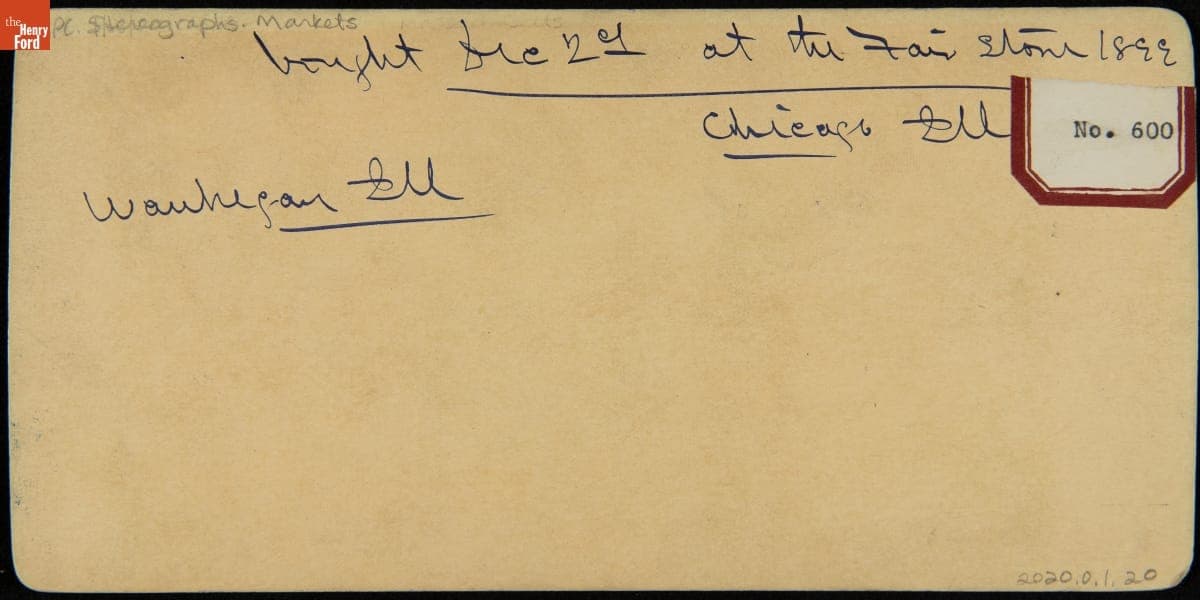 the Henry Ford
PC. Stereographs. Markets
bought Dec 29 at the Fair Store 1899
Chicago Ill
No. 600
Waukegan Ill
2020.0.1.20